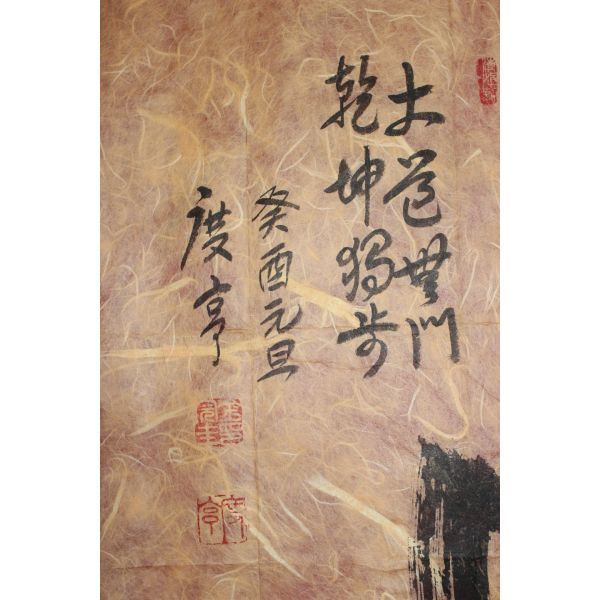 大道無門
乾坤獨步
癸酉元旦
度亨